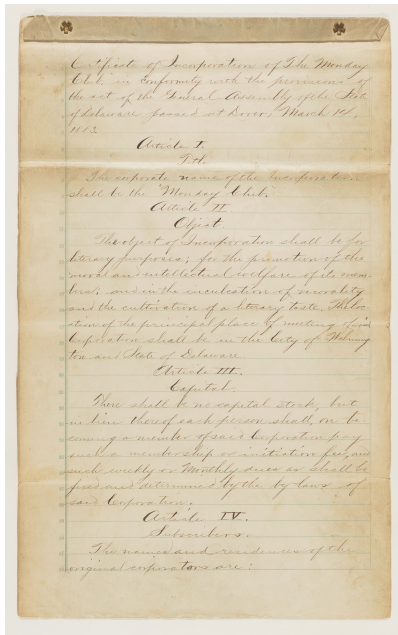 Certificate of Incorporation of The Monday
Club, in conformity with the provisions of
the act of the General Assembly of the State
of Delaware passed at Dover, March 14,
Article I.
The corporate name of the Incorporation
shall be the "Monday Club."
Article II
Object.
The object of Incorporation shall be for
literary purposes; for the promotion of the
moral and intellectual welfare of its mem-
bers; and in the inculcation of morality
and the cultivation of a literary taste. The loc-
ation of the principal place of meeting of said
Corporation shall be in the City of Wilming
ton and State of Delaware
Article III.
Capital.
There shall be no capital stock, but
in lieu thereof each person shall, on be-
coming a member of said Corporation pay
such a membership or initiation fee, and
such weekly or Monthly dues as shall be
fixed and determined by the by laws of
said Corporation.
Article IV.
Subscribers.
The names and residences of the
original corporators are: